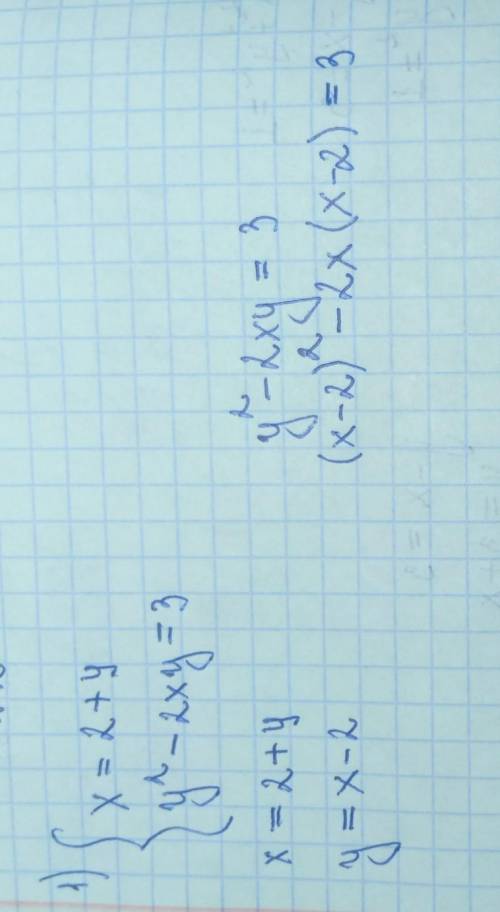 1) { x = 2 + y
y² - 2xy = 3
x = 2 + y
y = x - 2
y² - 2xy = 3
(x - 2)² - 2x (x - 2) = 3